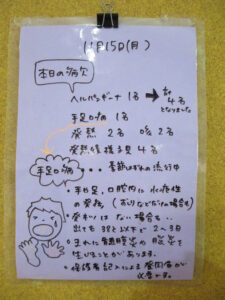 11月15日(月)
本日の病欠
ヘルパンギーナ 1名 → 計4名となりました
手足口病 1名
発熱 2名 咳 2名
発熱後様子見 4名
手足口病 ・・・ 季節はずれの流行中
・手や足、口腔内に水疱性
の発疹、(おしりなどにも)
・発熱はない場合も…
出ても38℃以下で2〜3日
・まれに髄膜炎や脳炎を
生じることがあります。
・保護者記入による登園届が
必要です。